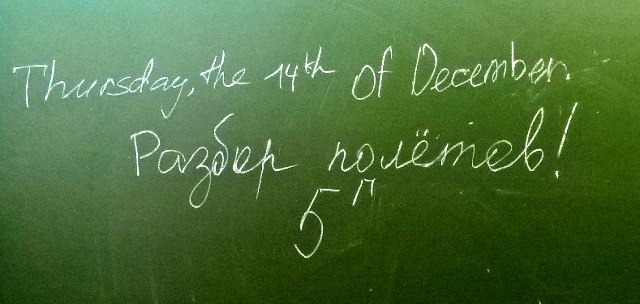 Thursday, the 14th of December.
Разбор полётов!
5 П